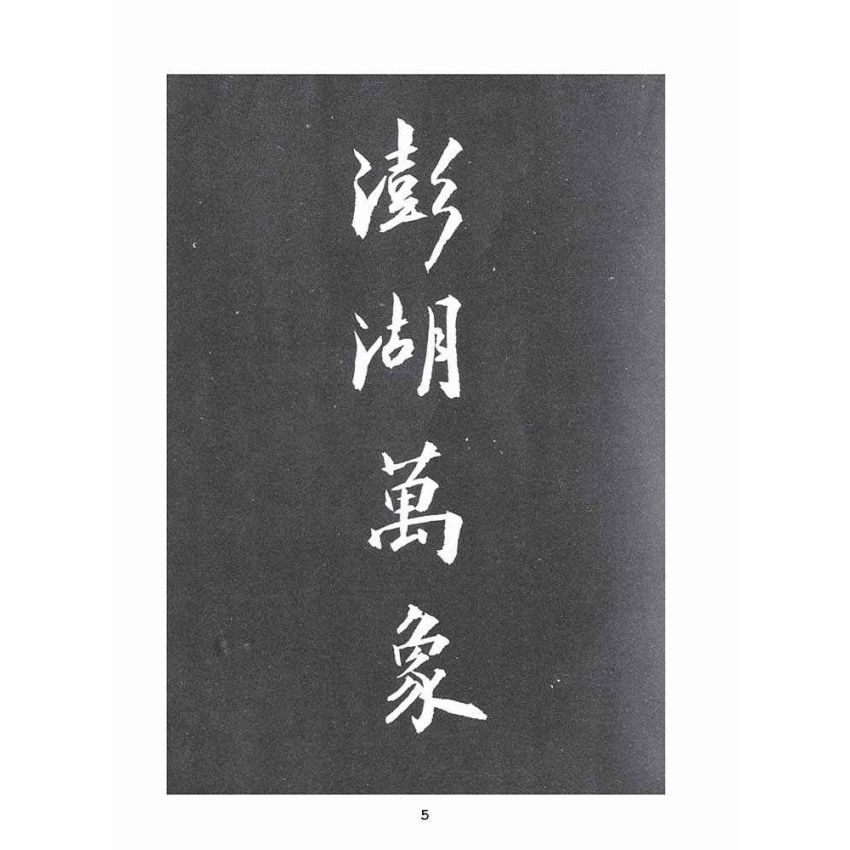 澎湖萬象
5